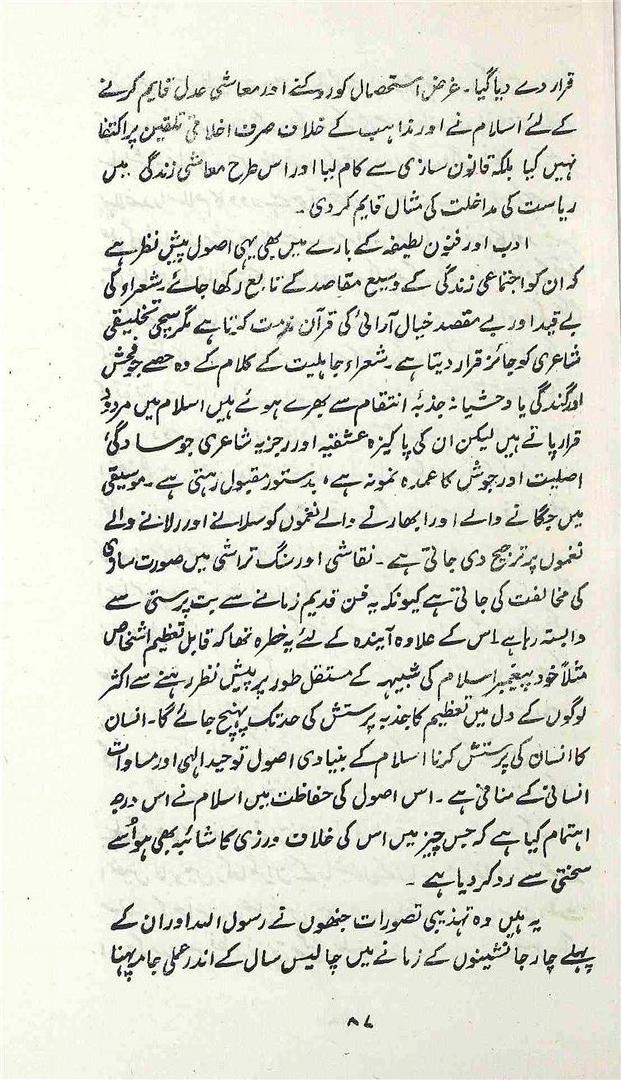 قرار دے دیا گیا۔ غرض استحصال کو روکنے اور معاشی عدل قایم کرنے
کے لئے اسلام نے اور مذاہب کے خلاف صرف اخلاقی تلقین پر اکتفا
نہیں کیا بلکہ قانون سازی سے کام لیا اور اس طرح معاشی زندگی میں
ریاست کی مداخلت کی مثال قایم کر دی۔
ادب اور فنون لطیفہ کے بارے میں بھی یہی اصول پیش نظر ہے
کہ ان کو اجتماعی زندگی کے وسیع مقاصد کے تابع رکھا جائے۔ شعراء کی
بے قید اور بے مقصد خیال آرائی کی قرآن مذمت کرتا ہے مگر سچی تخلیقی
شاعری کو جائز قرار دیتا ہے۔ شعراء جاہلیت کے کلام کے وہ حصے جو فحش
اور گندگی یا وحشیانہ جذبۂ انتقام سے بھرے ہوئے ہیں اسلام میں مردود
قرار پاتے ہیں لیکن ان کی پاکیزہ عشقیہ اور رجزیہ شاعری جو سادگی،
اصلیت اور جوش کا عمدہ نمونہ ہے، بدستور مقبول رہتی ہے۔ موسیقی
میں جگانے والے اور ابھارنے والے نغموں کو سلانے اور رلانے والے
نغموں پر ترجیح دی جاتی ہے۔ نقاشی اور سنگ تراشی میں صورت سازی
کی مخالفت کی جاتی ہے کیونکہ یہ فن قدیم زمانے سے بت پرستی سے
وابستہ رہا ہے۔ اس کے علاوہ آیندہ کے لئے یہ خطرہ تھا کہ قابل تعظیم اشخاص
مثلاً خود پیغمبر اسلام کی شبیہہ کے مستقل طور پر پیش نظر رہنے سے اکثر
لوگوں کے دل میں تعظیم کا جذبہ پرستش کی حد تک پہنچ جائے گا۔ انسان
کا انسان کی پرستش کرنا اسلام کے بنیادی اصول توحید الٰہی اور مساوات
انسانی کے منافی ہے۔ اس اصول کی حفاظت میں اسلام نے اس درجہ
اہتمام کیا ہے کہ جس چیز میں اس کی خلاف ورزی کا شائبہ بھی ہو اُسے
سختی سے رد کر دیا ہے۔
یہ ہیں وہ تہذیبی تصورات جنھوں نے رسول اللہ اور ان کے
پہلے چار جانشینوں کے زمانے میں چالیس سال کے اندر عملی جامہ پہنا
۸۷